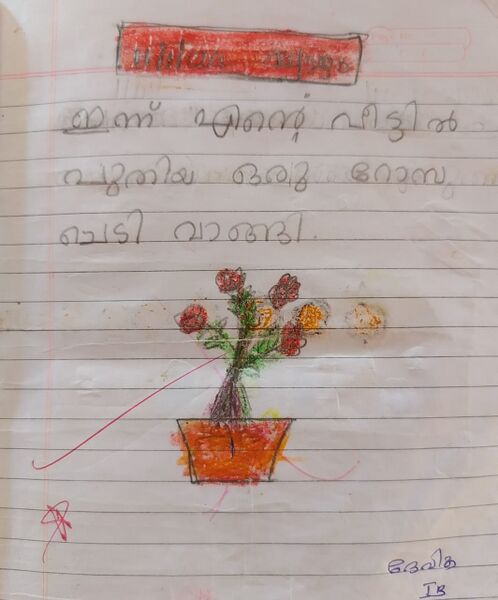 ഇന്ന് എന്റെ വീട്ടിൽ
പുതിയ ഒരു റോസ
ചെടി വാങ്ങി.
ദേവിക
IB